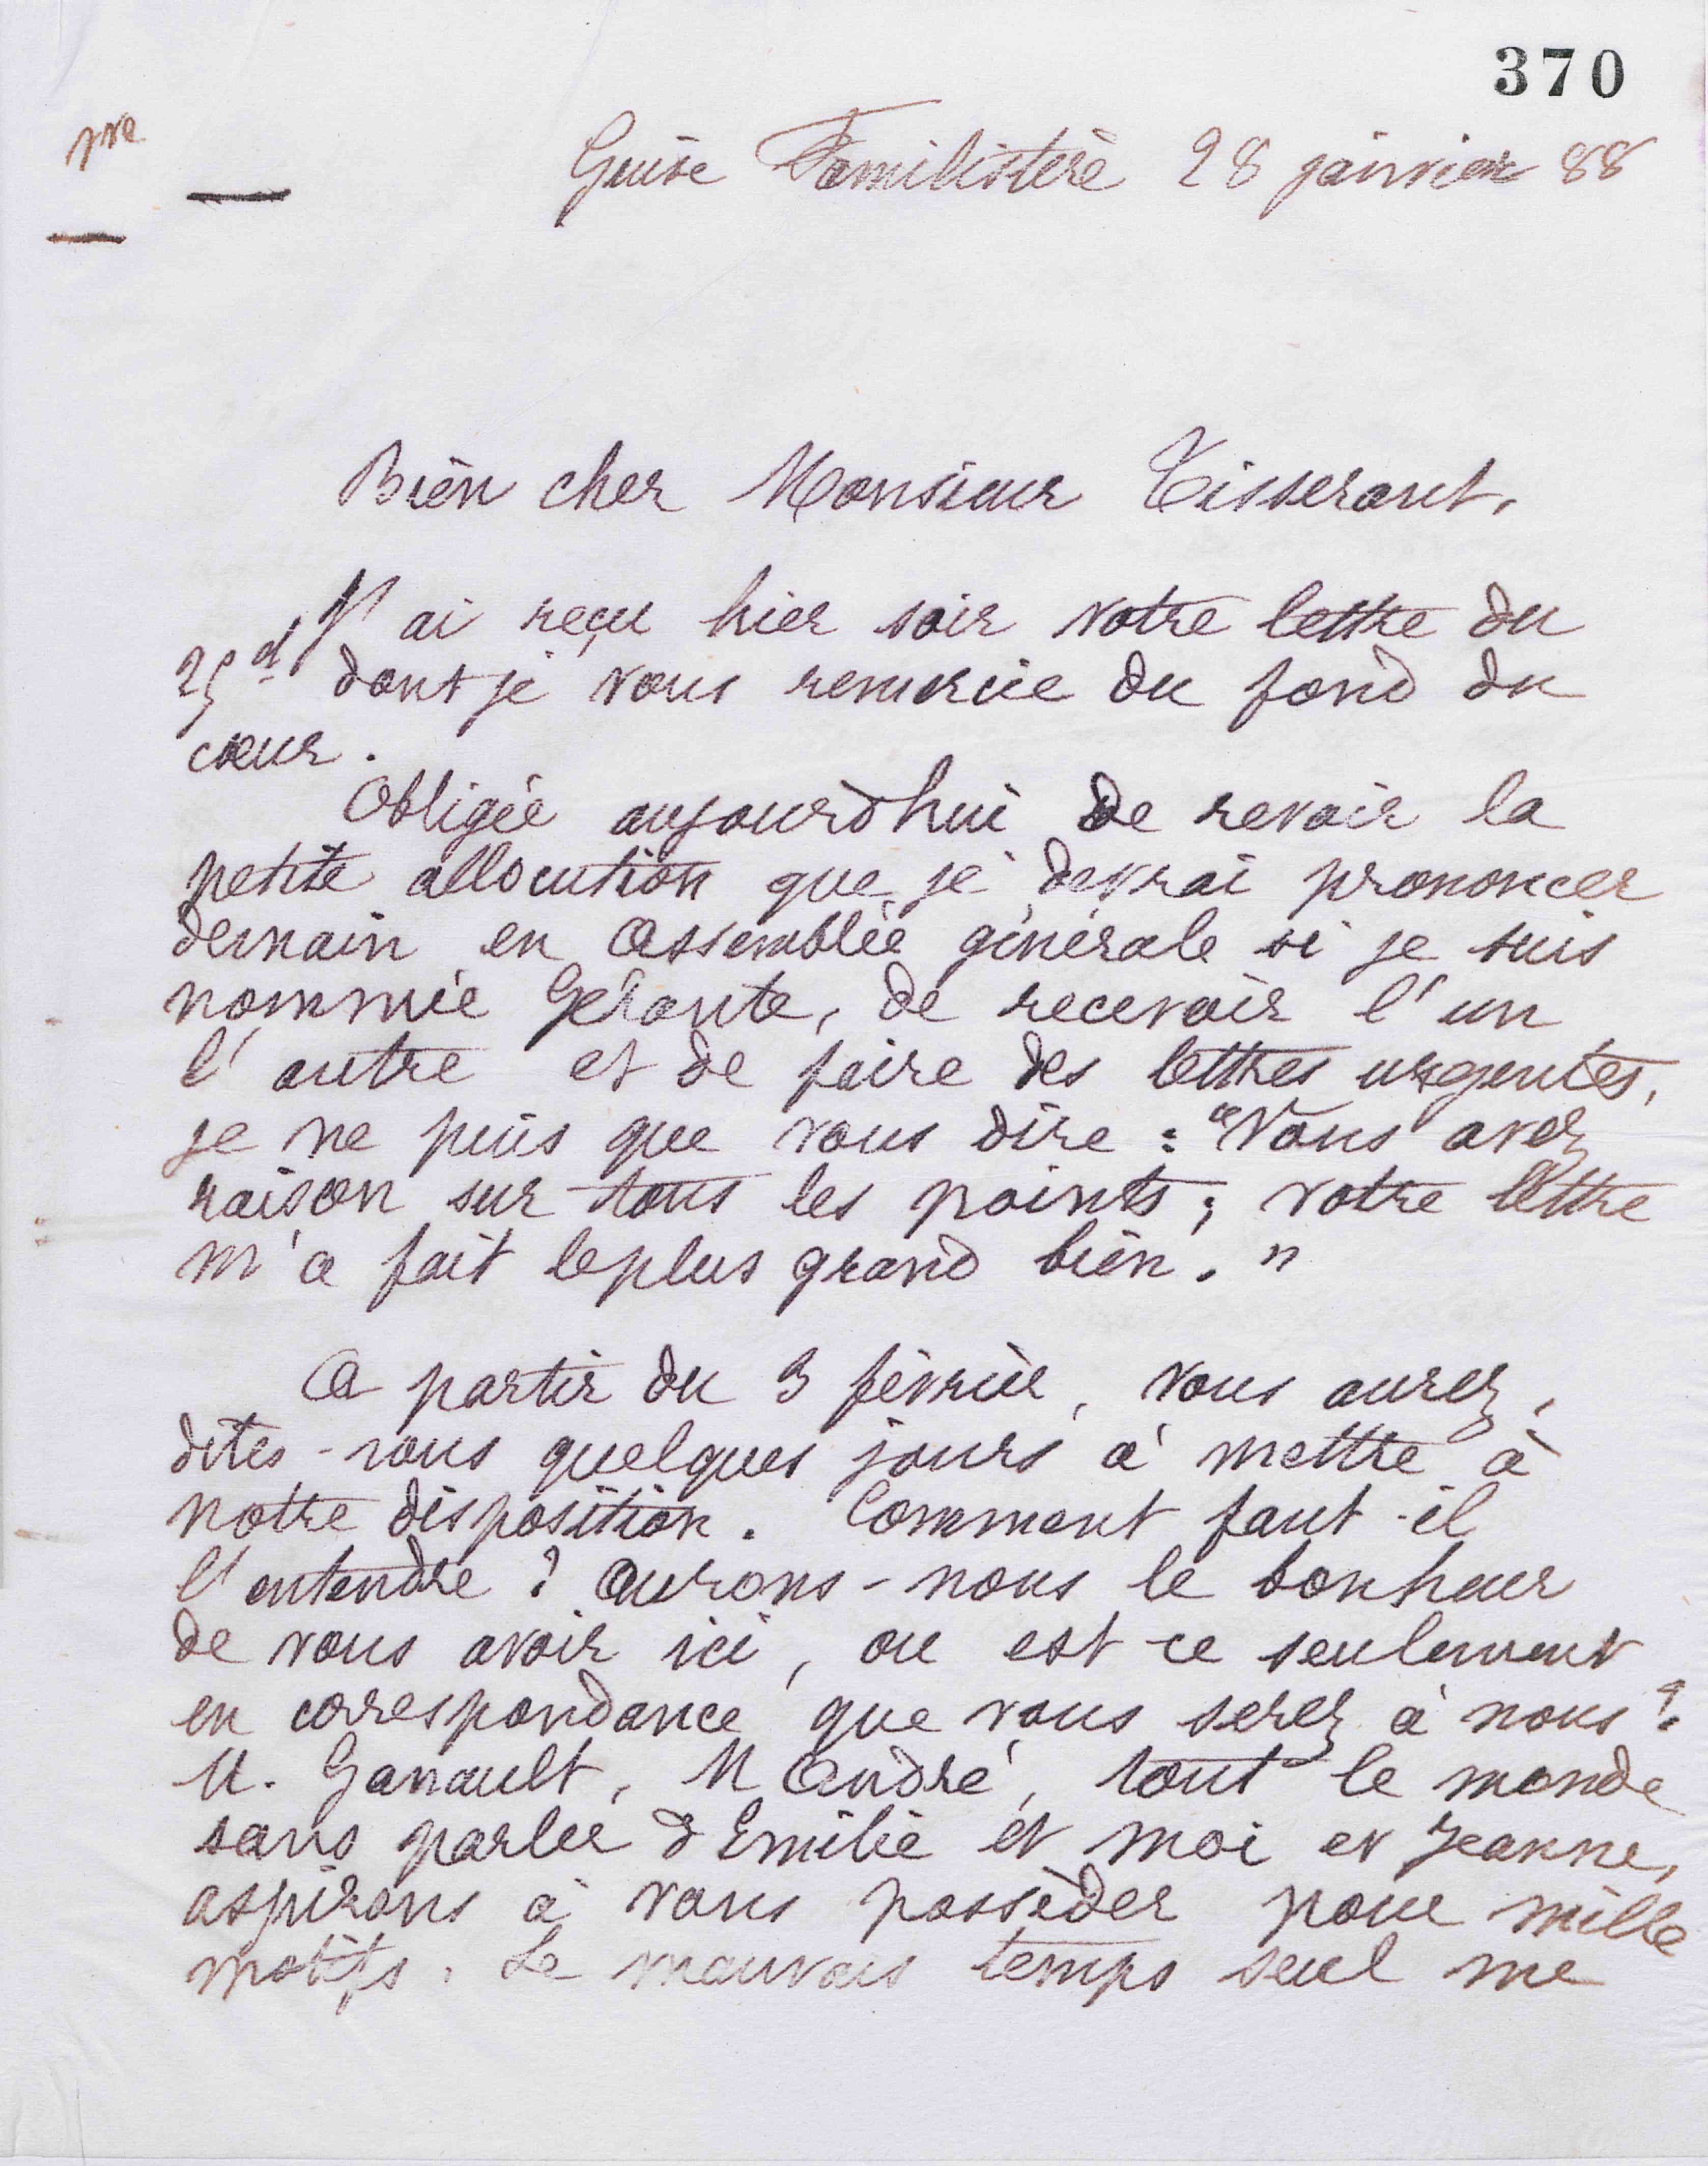 370
pre
Guise Familistère 28 janvier 88
Bien cher Monsieur Tisserant,
J'ai reçu hier soir votre lettre du
25 d. dont je vous remercie du fond du
cœur.
Obligée aujourd'hui de revoir la
petite allocution que je devrai prononcer
demain en Assemblée générale si je suis
nommée Gérante, de recevoir l'un
l'autre et de faire des lettres urgentes,
je ne puis que vous dire : "Vous avez
raison sur tous les points ; votre lettre
m'a fait le plus grand bien."
A partir du 3 février, vous aurez,
dites-vous quelques jours à mettre à
notre disposition. Comment faut-il
l'entendre ? Aurons-nous le bonheur
de vous avoir ici, ou est-ce seulement
en correspondance que vous serez à nous ?
M. Ganault, M André, tout le monde
sans parler d'Emilie et moi et Jeanne,
aspirons à vous posséder pour mille
motifs. Le mauvais temps seul me